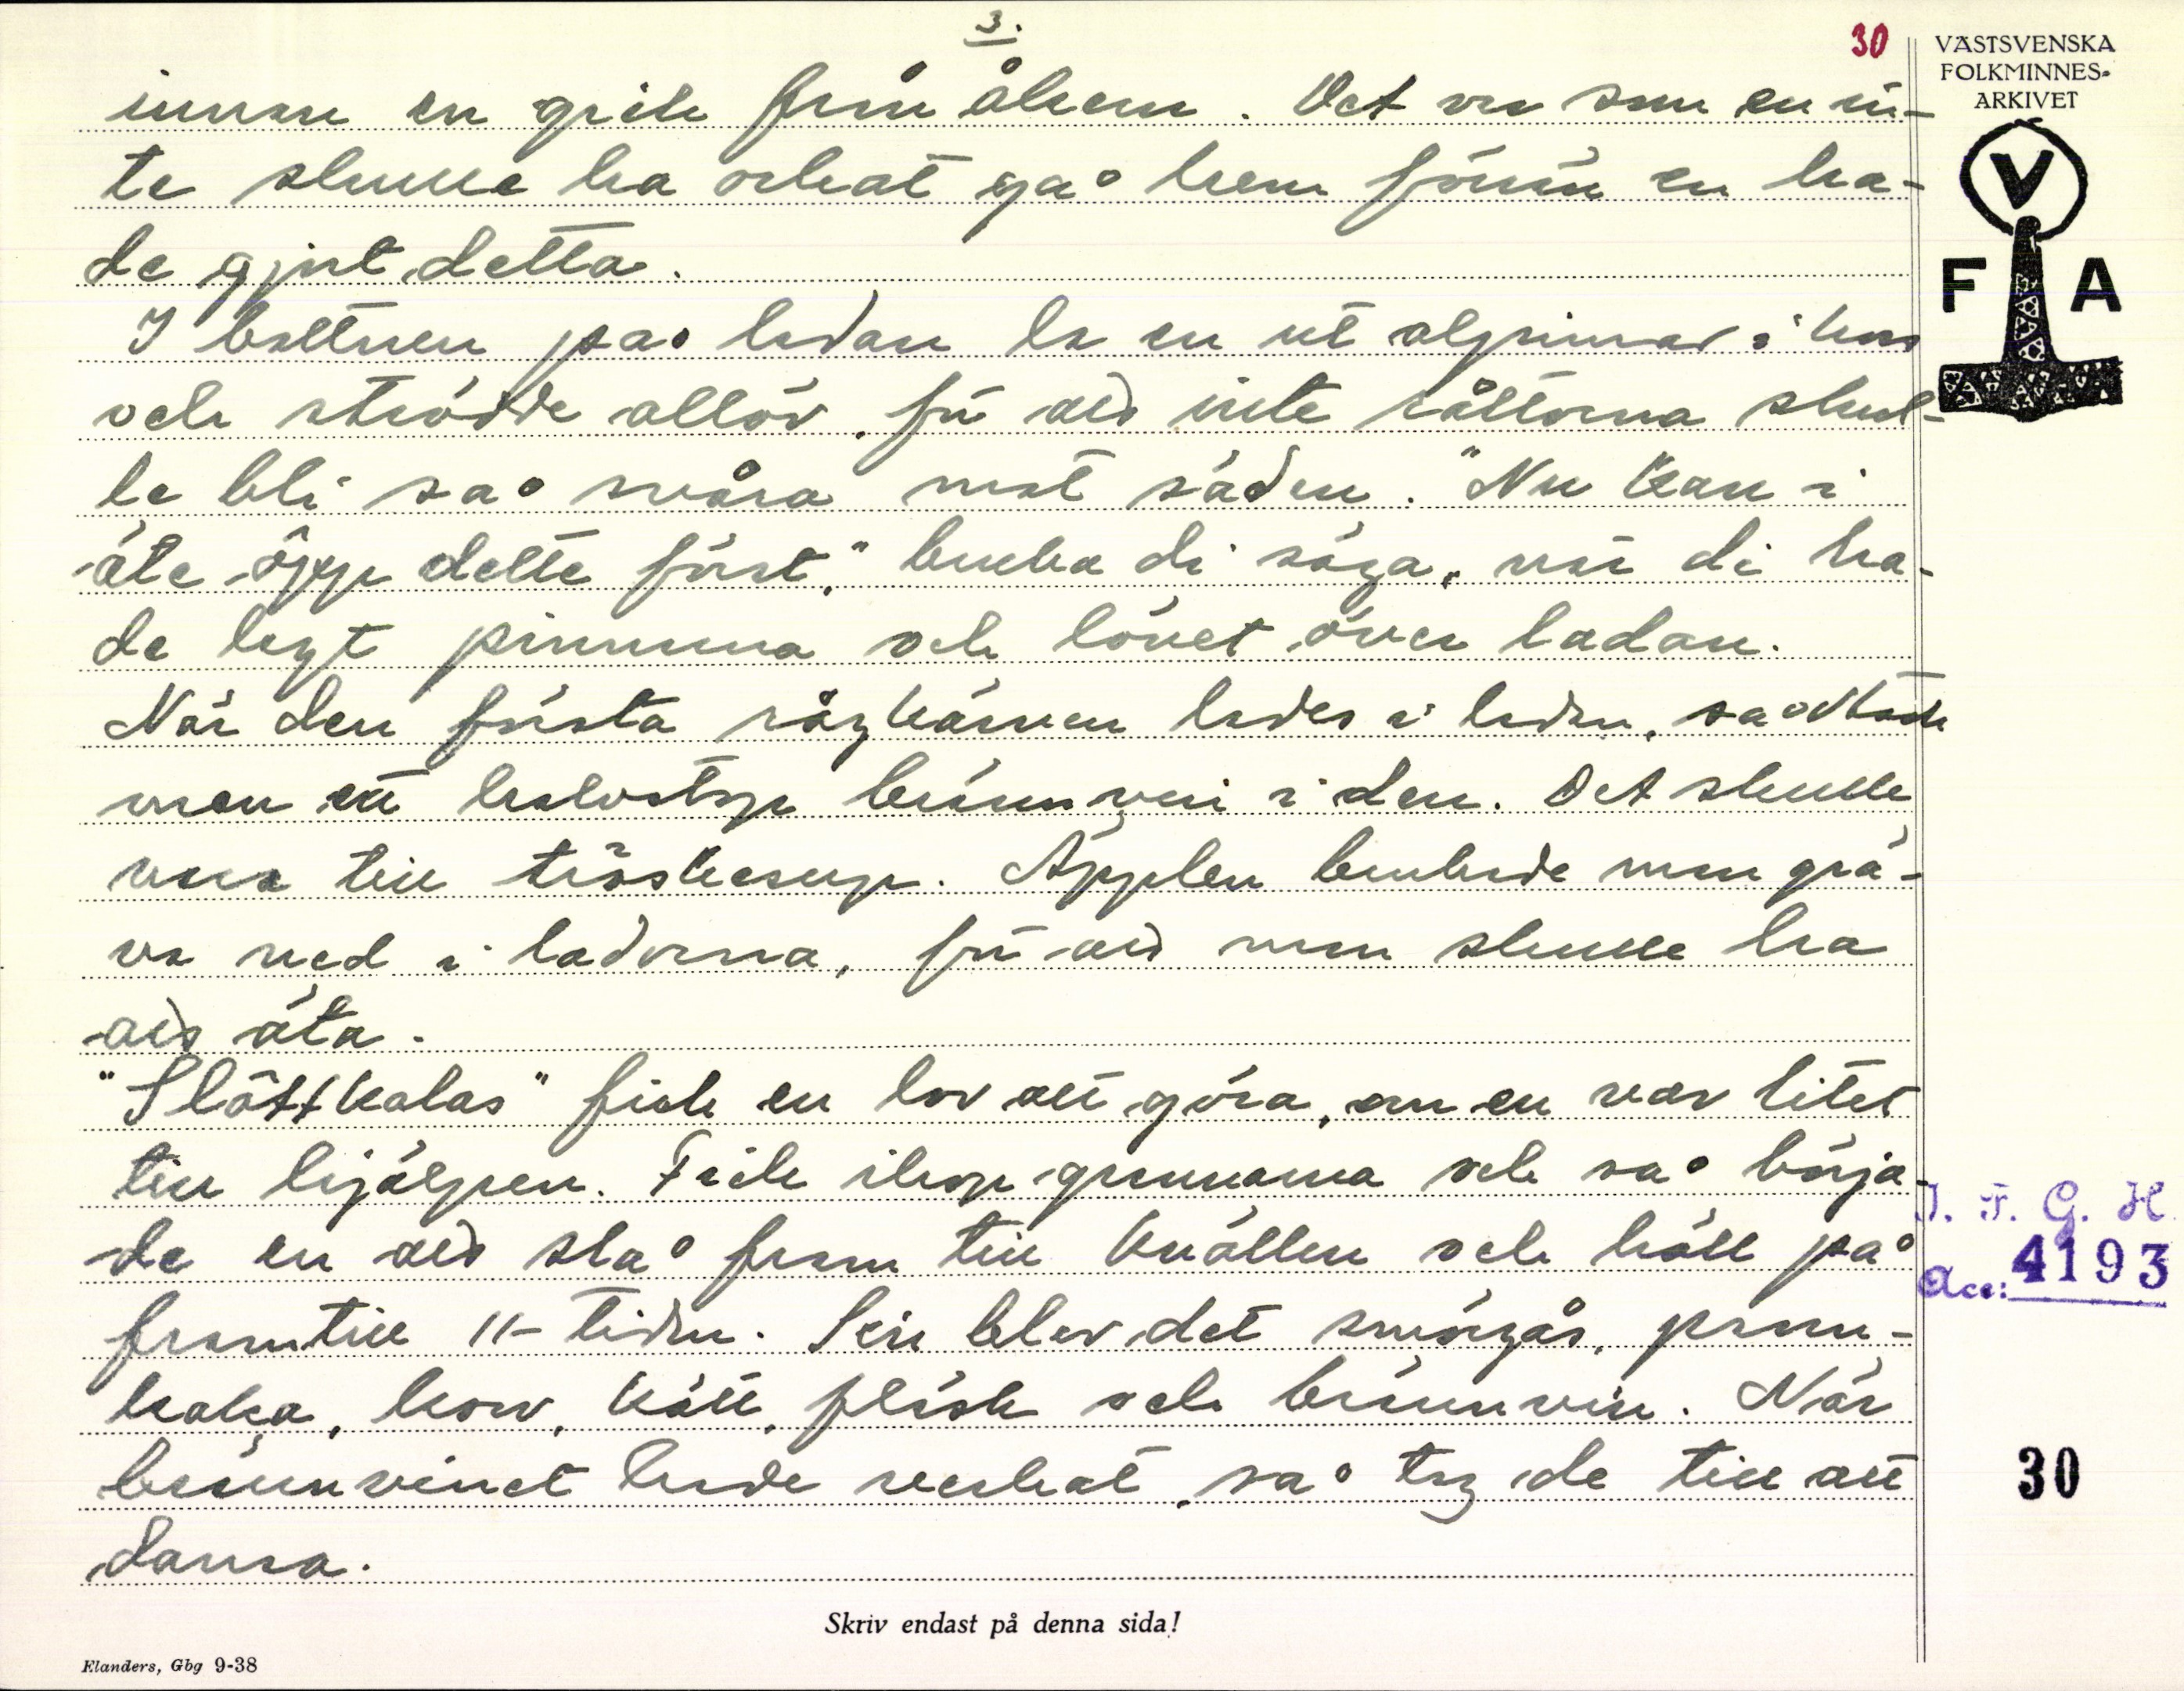 3.
30
VÄSTSVENSKA
FOLKMINNES-
ARKIVET
V
F A
innan en gick från åkern. Det va som en in-
te skulle ha orkat gå hem förrän en ha-
de gjort detta.
I bottnen på ladan la en ut alpinnar i kors
och strödde allöv, för att inte råttorna skul-
le bli så svåra mot säden. "Nu kan i
äte öpp dette föst," bruka di säga, när di ha-
de lagt pinnarna och lövet över ladan.
När den första rågkärven lades i ladan, så
man ett halvstop brännvin i den. Det skulle
vara till tröskesup. Äpplen brukade man grä-
va ned i ladorna, för att man skulle ha
att äta.
"Slåttkalas" fick en lov att göra, om en var litet
till hjälpen. Fick ihop grannarna och så börja-
de en att slå fram till kvällen och höll på
fram till 11-tiden. Sen blev det smörgås, pann-
kaka, korv, kött, fläsk och brännvin. När
brännvinet hade verkat, så tog de till att
dansa.
I. F. G. H.
Acc: 4193
30
Skriv endast på denna sida!
Elanders, Gbg 9-38